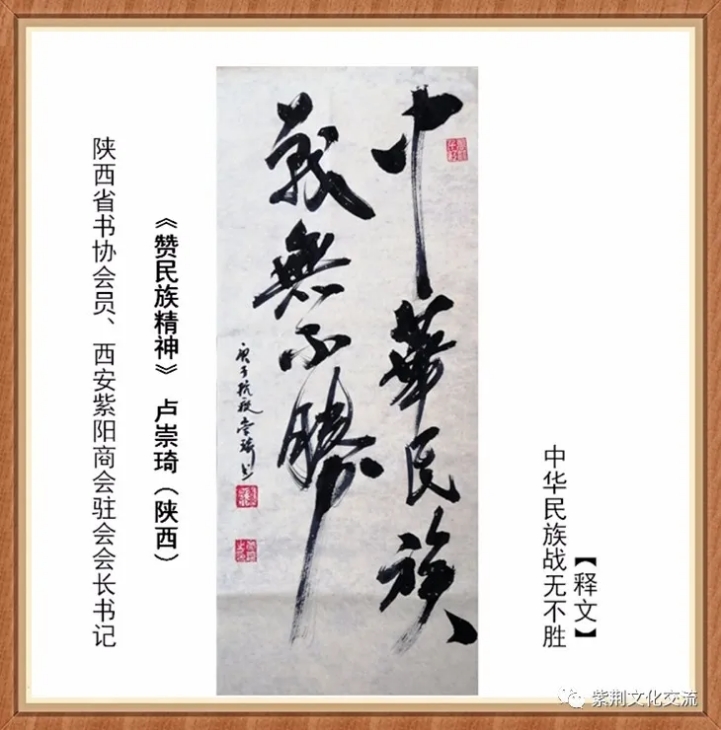 【释文】
中华民族战无不胜
中華民族
戰無不勝
庚子抗疫崇琦书
《赞民族精神》 卢崇琦（陕西）
陕西省书协会员、西安紫阳商会驻会会长书记
紫荆文化交流